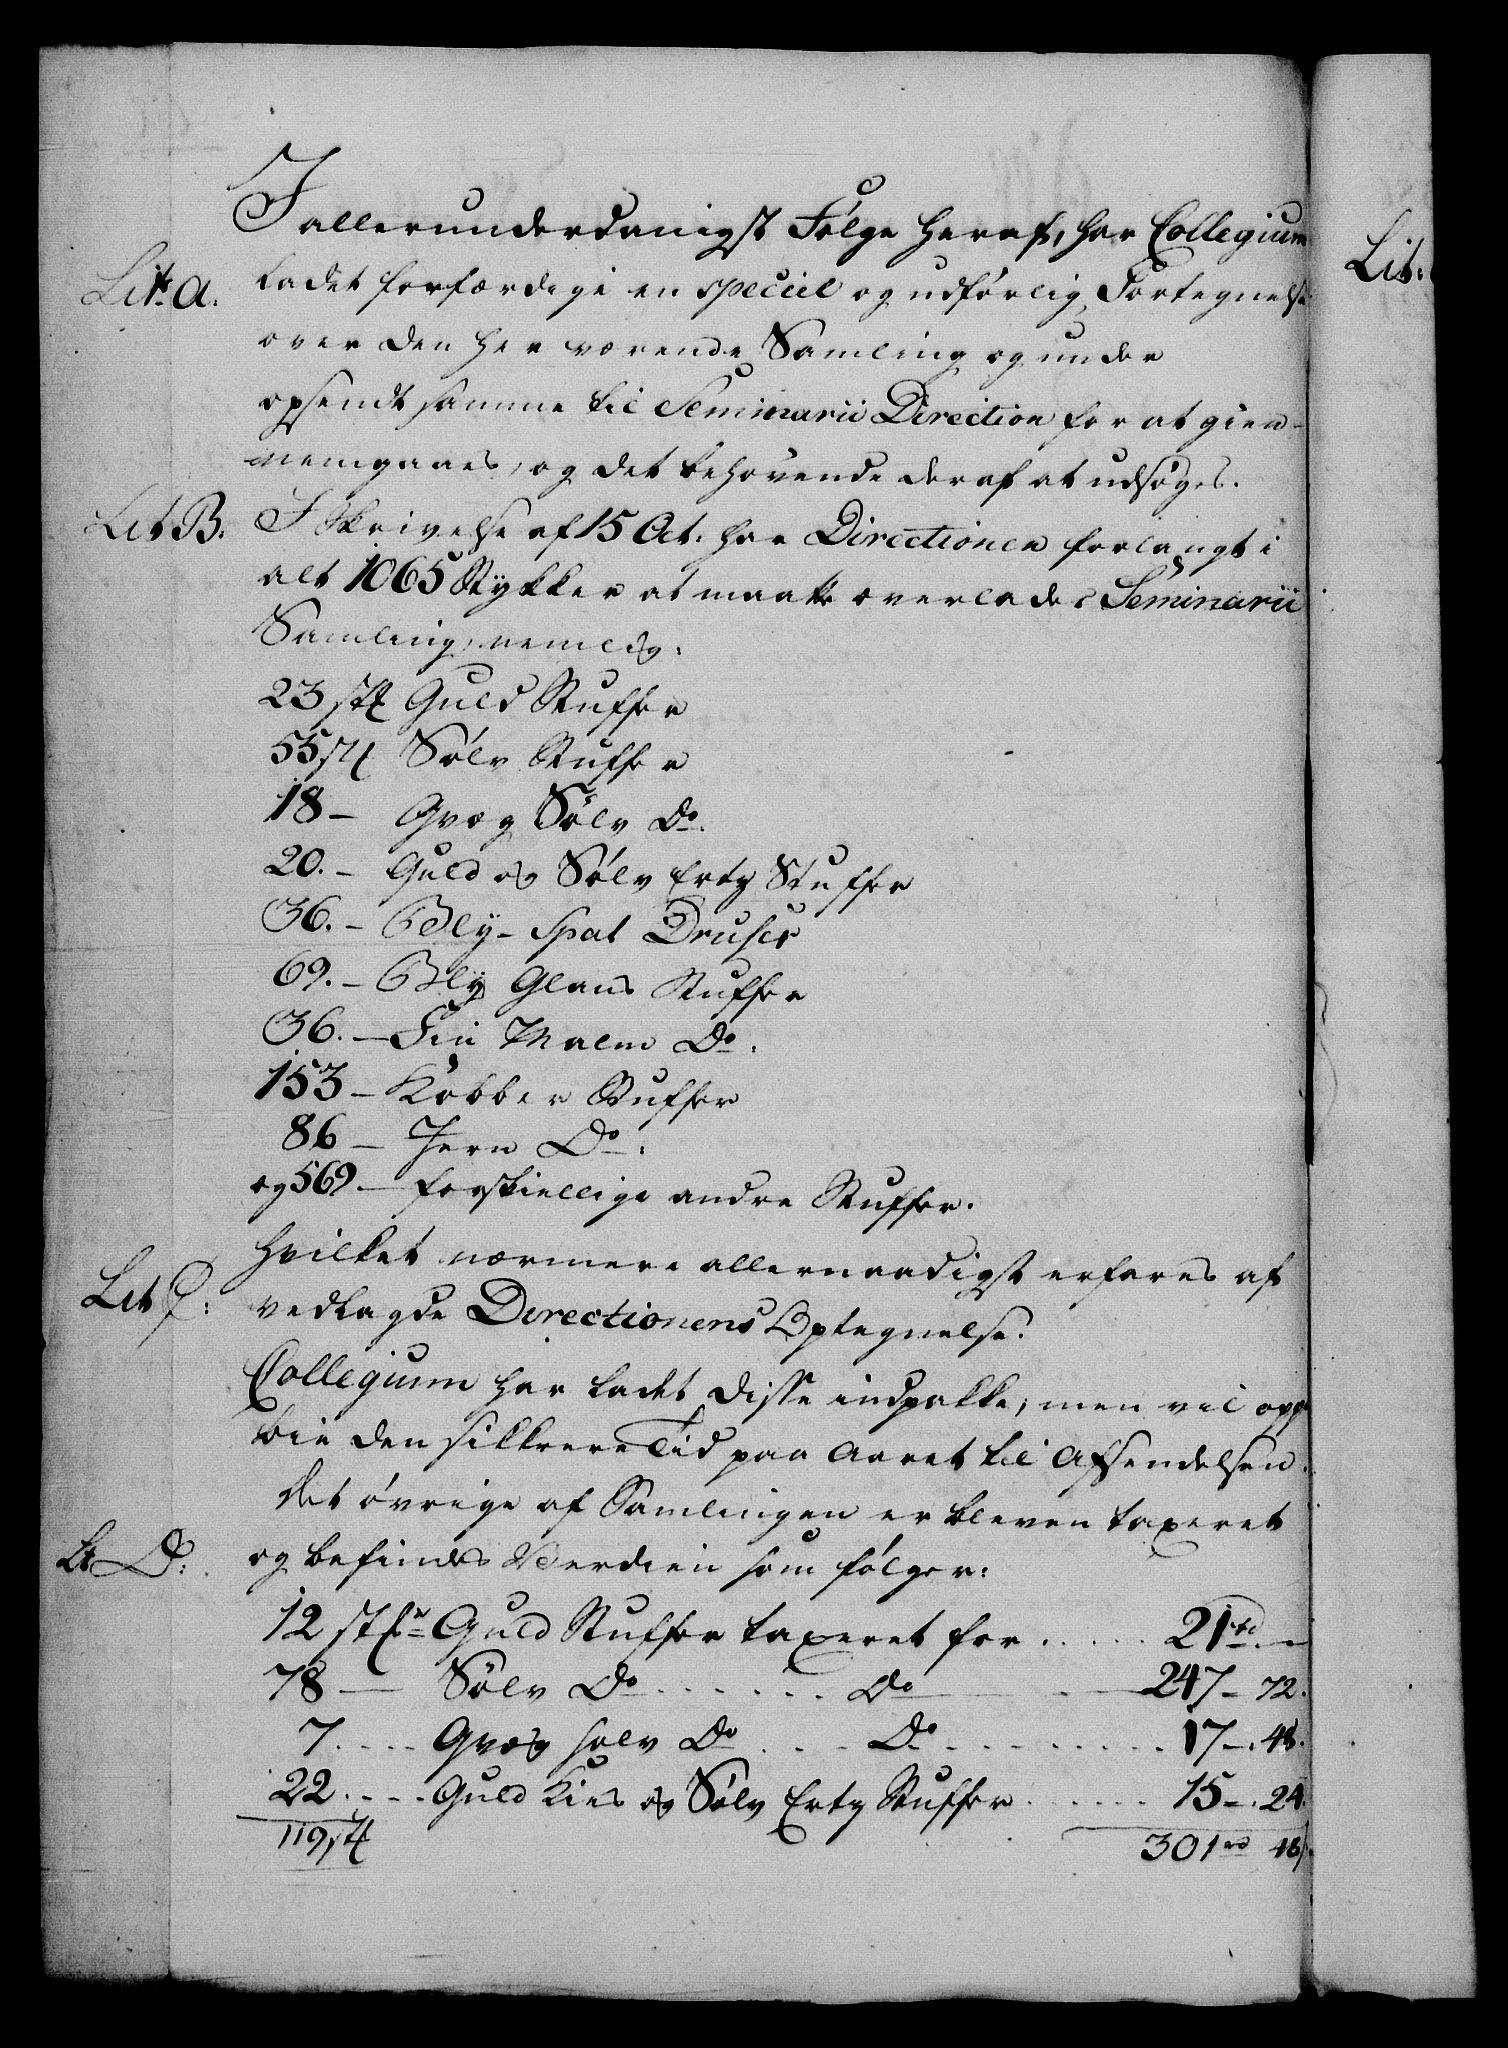 I allerunderdanigst Følge heraf, har Collegium
Lit. A. ladet forfærdige en speciel og udførlig Fortegnelse
over den her værende Samling og under
opsendt samme til Seminarii Direction for at gien-
nemgaaes, og det behøvende deraf at udsøges.
Lit B. I Skrivelse af 15 Oct. har Directionen forlangt i
alt 1065 Stykker at maatte overlades Seminarii
Samling, nemlig:
23 stk Guld Stuffer
55 stk Sølv Stuffer
18 – Qvæg Sølv Do.
20. – Guld og Sølv Ertz Stuffer
36. – Bly-Spat Druser
69. – Bly Glans Stuffer
36. – Tin Malm Do.
153 – Kobber Stuffer
86 – Jern Do.
og 569. – forskiellige andre Stuffer.
hvilket nærmere allernaadigst erfares af
Lit C: vedlagde Directionens Optegnelse.
Collegium har ladet disse indpakke, men vil opp
bie den sikkrere Tid paa Aaret til Afsendelsen.
det øvrige af Samlingen er bleven taxeret
Lt D: og befindes Værdien som følger:
12 stkr Guld Stuffer taxeret for ..... 21 rd. –
78 — Sølv Do ....... Do — 247 – 72.
7. ... Qvæg sølv Do ... Do ........ 17 –. 48.
22. ... Guld Kies og Sølv Ertz Stuffer ...... 15 –. 24.
119 stk 301 rd 48 s.
Lit: